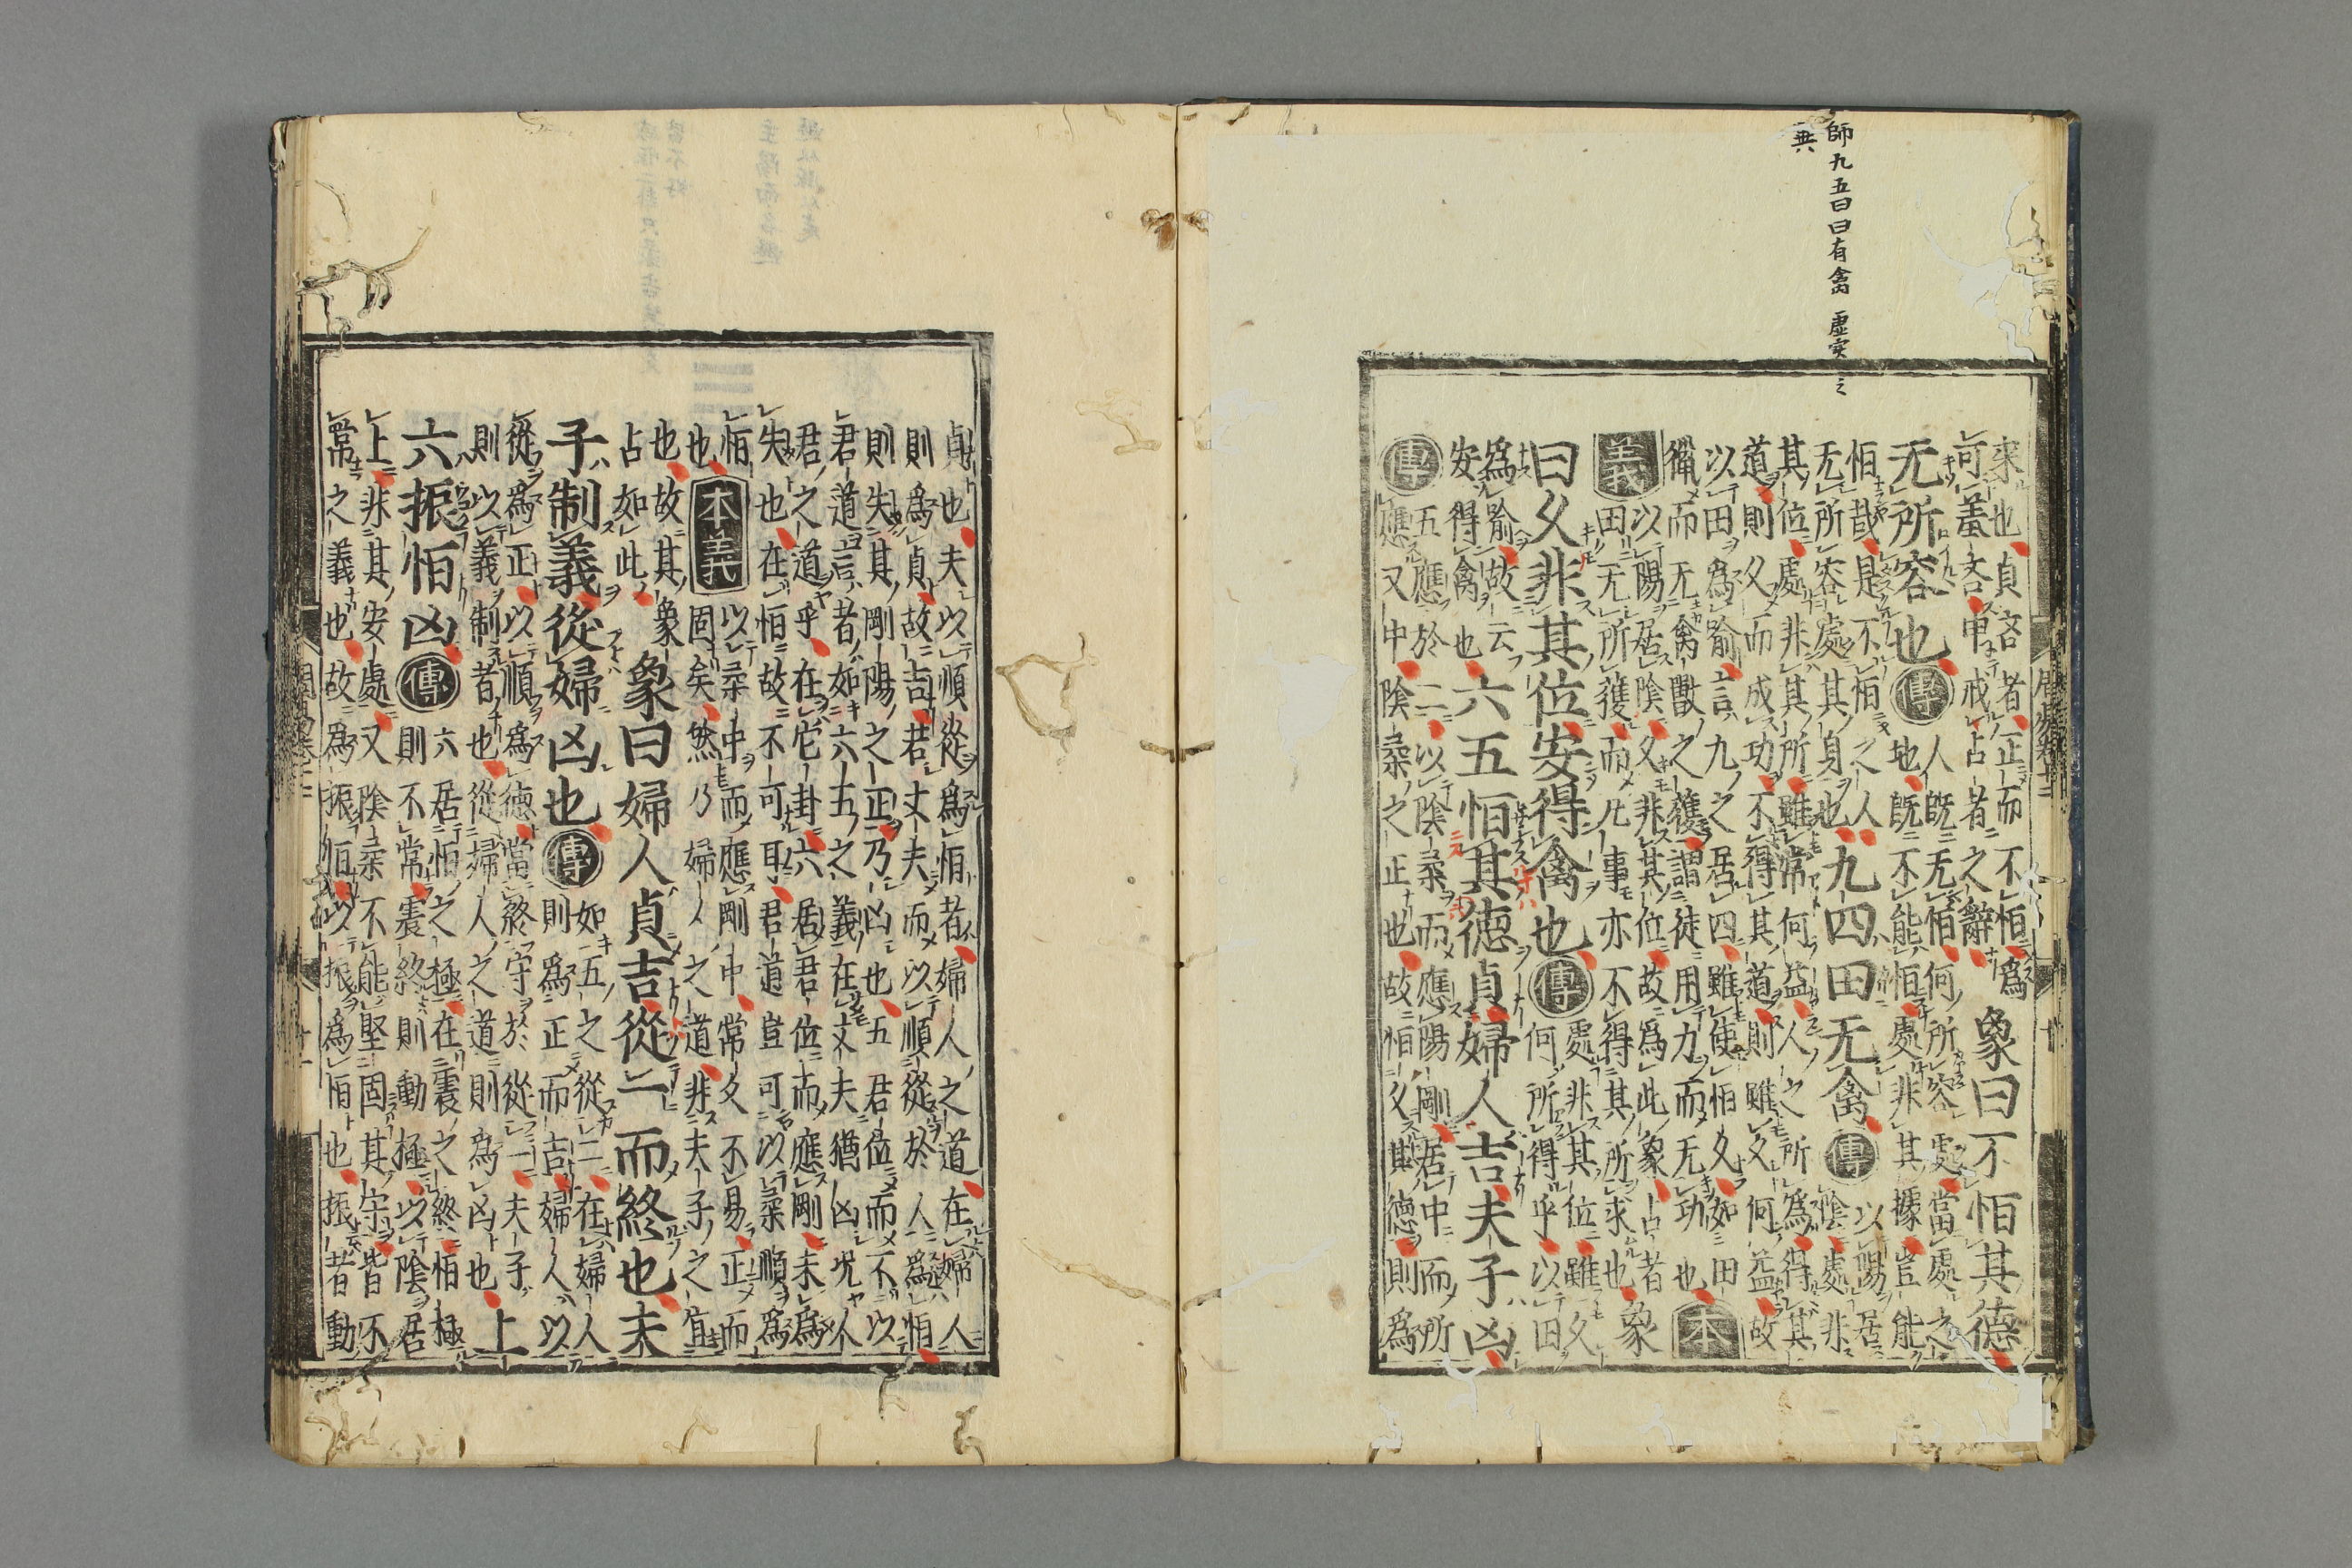 師九五曰曰有禽 虛実之
來也貞吝者正而不恒爲
可羞吝申戒占者之辭
象曰不恒其德
无所容也
傳
人既无恒何所容處當處之
地既不能恒處非其據豈能
恒哉是不恒之人
无所容處其身也
九四田无禽
傳
以陽居
陰處非
其位處非其所雖常何益人之所爲得其
道則久而成功不得其道則雖久何益故
以田爲喻言九之居四雖使恒久如田
獵而无禽獸之獲謂徒用力而无功也
本
義
以陽居陰久非其位故爲此象占者
田无所獲而凡事亦不得其所求也
象
曰久非其位安得禽也
傳
處非其位雖久
何所得乎以田
爲喻故云
安得禽也
六五恒其德貞婦人吉夫子凶
傳
五應於二以陰柔而應陽剛居中而所
應又中陰柔之正也故恒久其德則爲
貞也夫以順從爲恒者婦人之道在婦人
則爲貞故吉若丈夫而以順從於人爲恒
則失其剛陽之正乃凶也五君位而不以
君道言者如六五之義在丈夫猶凶况人
君之道乎在它卦六居君位而應剛未爲
失也在恒故不可耳君道豈可以柔順爲
恒
也
本義
以柔中而應剛中常久不易正而
固矣然乃婦人之道非夫子之宜
也故其象
占如此
象曰婦人貞吉從一而終也夫
子制義從婦凶也
傳
如五之從二在婦人
則爲正而吉婦人以
從爲正以順爲德當終守於從一夫子
則以義制者也從婦人之道則爲凶也
上
六振恒凶
傳
六居恒之極在震之終恒極
則不常震終則動極以陰居
上非其安處又陰柔不能堅固其守皆不
常之義也故爲振恒以振爲恒也振者動